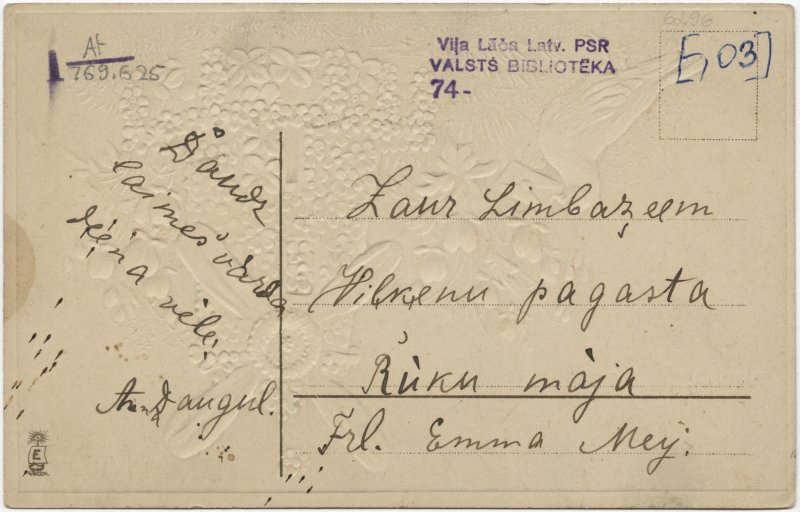 6296
At
769.625
Viļa Lāča Latv. PSR
VALSTS BIBLIOTĒKA
74-
[5,03]
Daudz
laimes vārda
deena vēlē.
Daugul.
Zaur Limbaźeem
Vilkenu pagasta
Rùku màja
Frl. Emma Mey.
E